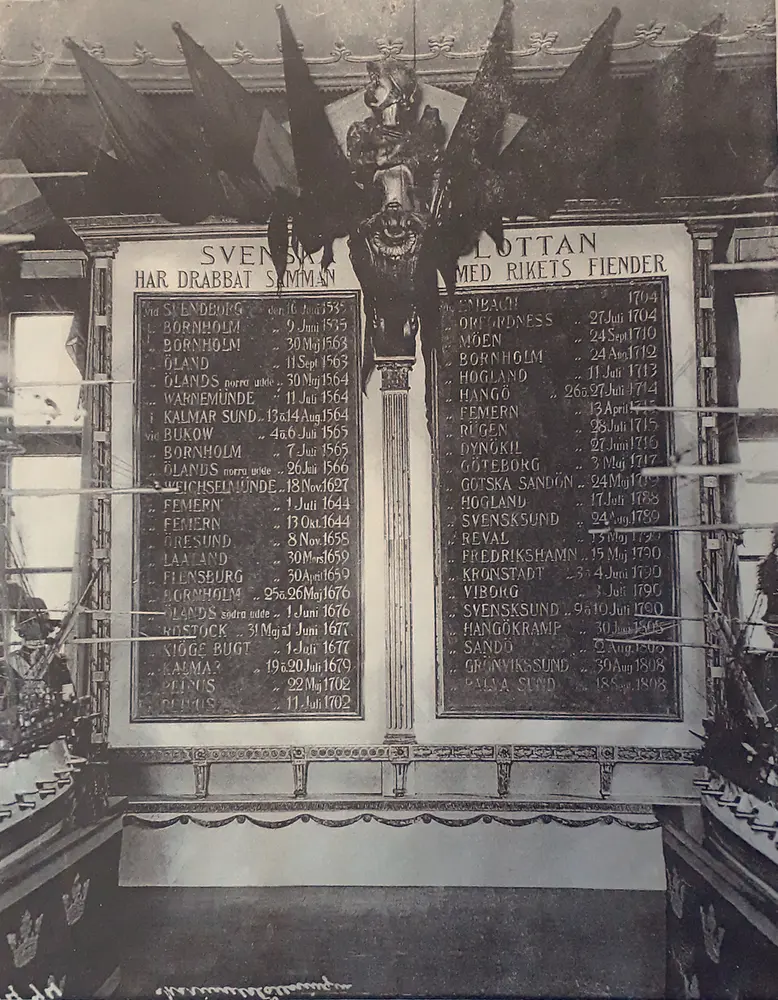 SVENSKA FLOTTAN
HAR DRABBAT SAMMAN MED RIKETS FIENDER
vid SVENDBORG den 16 Juni 1535
„ BORNHOLM „ 9 Juni 1535
„ BORNHOLM 30 Maj 1563
„ ÖLAND „ 11 Sept 1563
„ ÖLANDS norra udde „ 30 Maj 1564
„ WARNEMÜNDE „ 11 Juli 1564
i KALMAR SUND „ 13 o. 14 Aug. 1564
vid BUKOW „ 4 o. 6 Juli 1565
BORNHOLM „ 7 Juli 1565
„ ÖLANDS norra udde „ 26 Juli 1566
„ WEICHSELMÜNDE „ 18 Nov. 1627
„ FEMERN „ 1 Juli 1644
„ FEMERN „ 13 Okt. 1644
„ ÖRESUND „ 8 Nov. 1658
„ LAALAND 30 Mars 1659
„ FLENSBURG „ 30 April 1659
„ BORNHOLM „ 25 o. 26 Maj 1676
„ ÖLANDS södra udde „ 1 Juni 1676
„ ROSTOCK „ 31 Maj o. 1 Juni 1677
„ KIÖGE BUGT „ 1 Juli 1677
„ KALMAR 19 o. 20 Juli 1679
„ PEIPUS „ 22 Maj 1702
„ PEIPUS „ 11 Juli 1702
EMBACH 1704
„ ORFORDNESS „ 27 Juli 1704
„ MÖEN „ 24 Sept 1710
„ BORNHOLM „ 24 Aug. 1712
„ HOGLAND „ 11 Juli 1713
„ HANGÖ „ 26 o. 27 Juli 1714
„ FEMERN „ 13 April 1715
„ RÜGEN „ 28 Juli 1715
„ DYNÖKIL „ 27 Juni 1716
„ GÖTEBORG „ 3 Maj 1717
„ GOTSKA SANDÖN „ 24 Maj 1719
„ HOGLAND „ 17 Juli 1788
„ SVENSKSUND „ 24 Aug. 1789
„ REVAL „ 13 Maj 1790
„ FREDRIKSHAMN „ 15 Maj 1790
„ KRONSTADT „ 3 o. 4 Juni 1790
„ VIBORG „ 3 Juli 1790
„ SVENSKSUND „ 9 o. 10 Juli 1790
„ HANGÖKRAMP „ 30 1808
„ SANDÖ „ 2 Aug. 1808
„ GRÖNVIKSSUND „ 30 Aug 1808
„ PALVA SUND „ 18 Sept. 1808